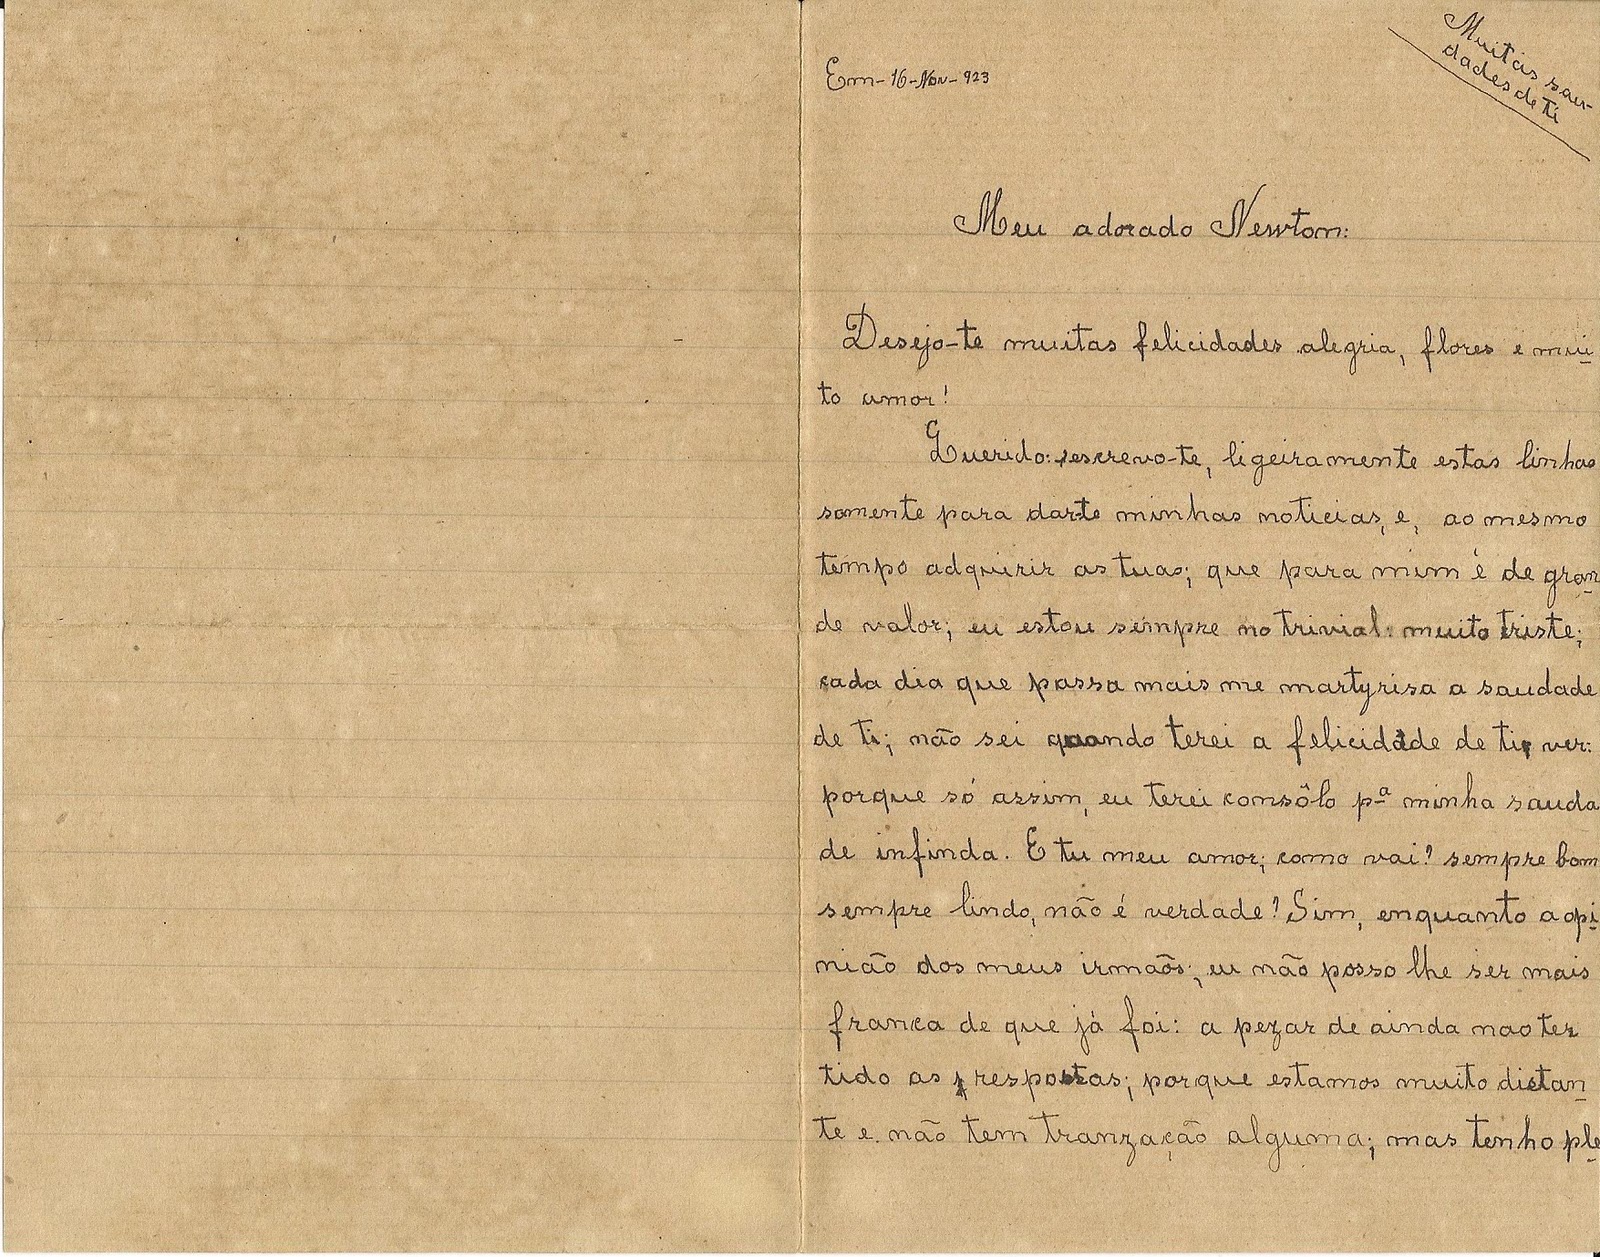 Em-16-Nov-923
Muitas sau-
dades de ti
Meu adorado Newton:
Desejo-te muitas felicidades alegria, flores e mui
to amor!
Querido: escrevo-te, ligeiramente estas linhas
somente para dar-te minhas noticias, e, ao mesmo
tempo adquirir as tuas; que para mim é de gran
de valor; eu estou sempre no trivial: muito triste;
cada dia que passa mais me martyrisa a saudade
de ti; não sei quando terei a felicidade de ti, ver:
porque só assim, eu terei consôlo pª minha sauda
de infinda. E tu meu amor; como vai? sempre bom
sempre lindo, não é verdade? Sim, enquanto a opi
nião dos meus irmaõs; eu não posso lhe ser mais
franca de que já foi: a pezar de ainda nao ter
tido as respostas; porque estamos muito distan
te e não tem tranzação alguma; mas tenho ple